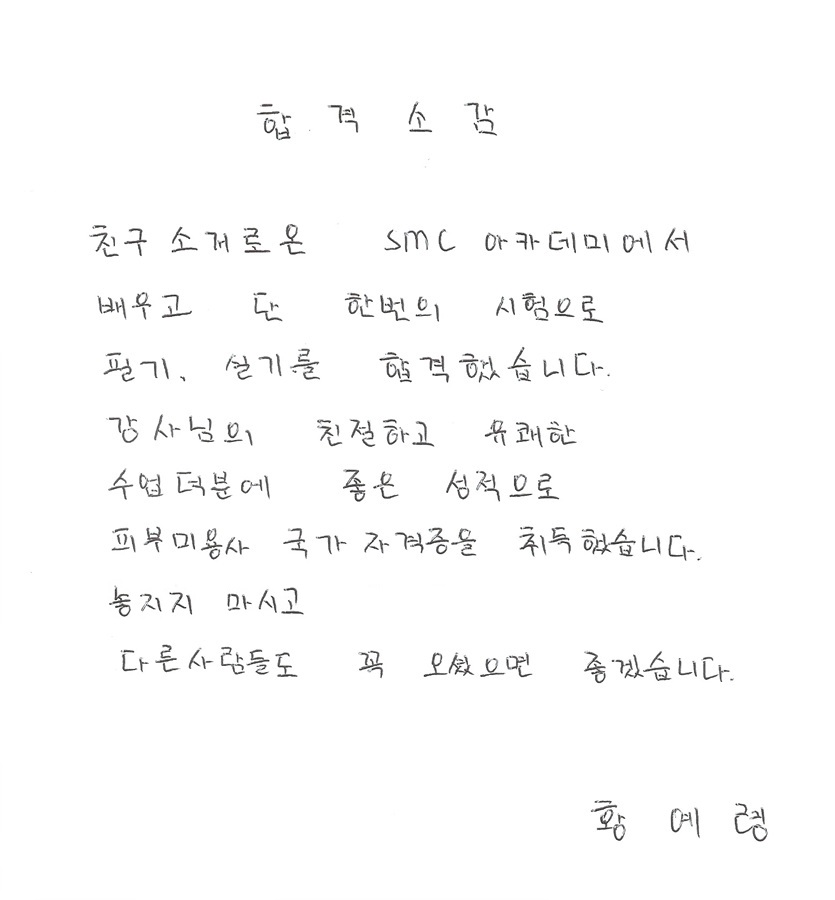 합격소감
친구소개로온 SMC 아카데미에서
배우고 단 한번의 시험으로
필기, 실기를 합격했습니다.
강사님의 친절하고 유쾌한
수업덕분에 좋은 성적으로
피부미용사 국가 자격증을 취득했습니다.
놓지지 마시고
다른사람들도 꼭 오셨으면 좋겠습니다.
황예령